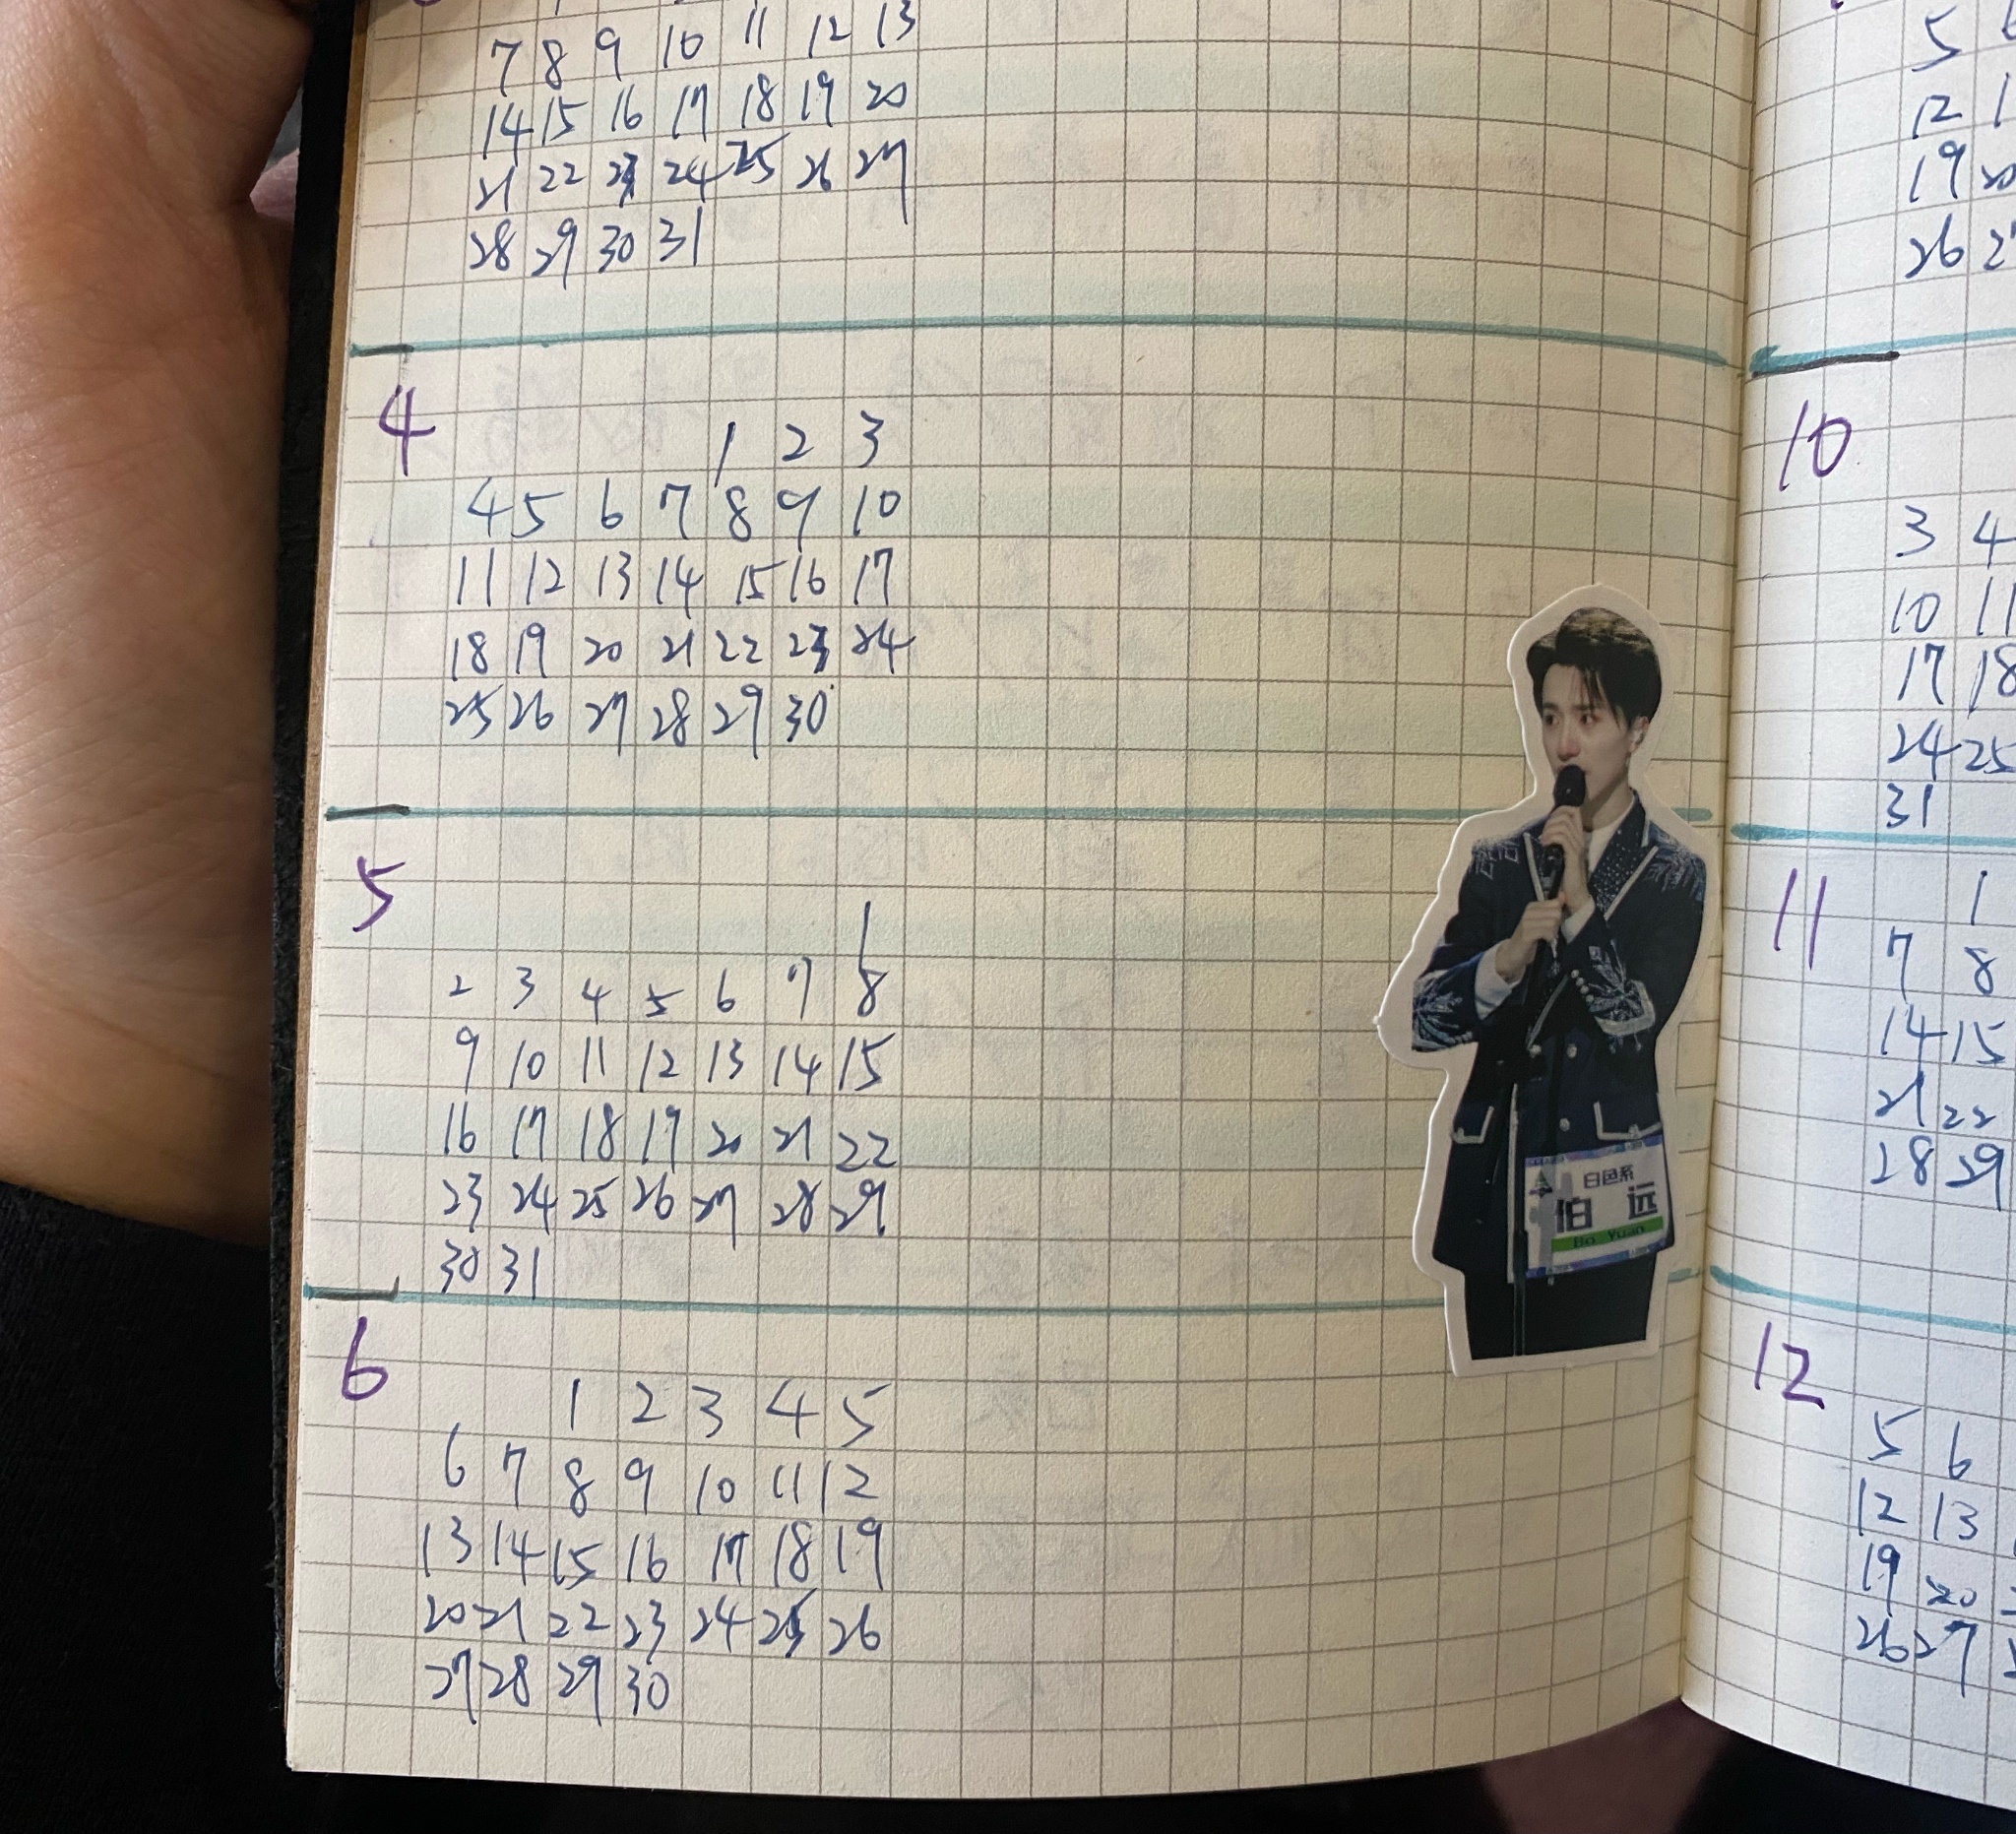 7 8 9 10 11 12 13
14 15 16 17 18 19 20
21 22 23 24 25 26 27
28 29 30 31
4
1 2 3
4 5 6 7 8 9 10
11 12 13 14 15 16 17
18 19 20 21 22 23 24
25 26 27 28 29 30
5
1
2 3 4 5 6 7 8
9 10 11 12 13 14 15
16 17 18 19 20 21 22
23 24 25 26 27 28 29
30 31
6
1 2 3 4 5
6 7 8 9 10 11 12
13 14 15 16 17 18 19
20 21 22 23 24 25 26
27 28 29 30
白色系
伯 远
Bo Yuan
5
12
19 20
26
10
3 4
10 11
17 18
24 25
31
11
1
7 8
14 15
21 22
28 29
12
5 6
12 13
19 20
26 27